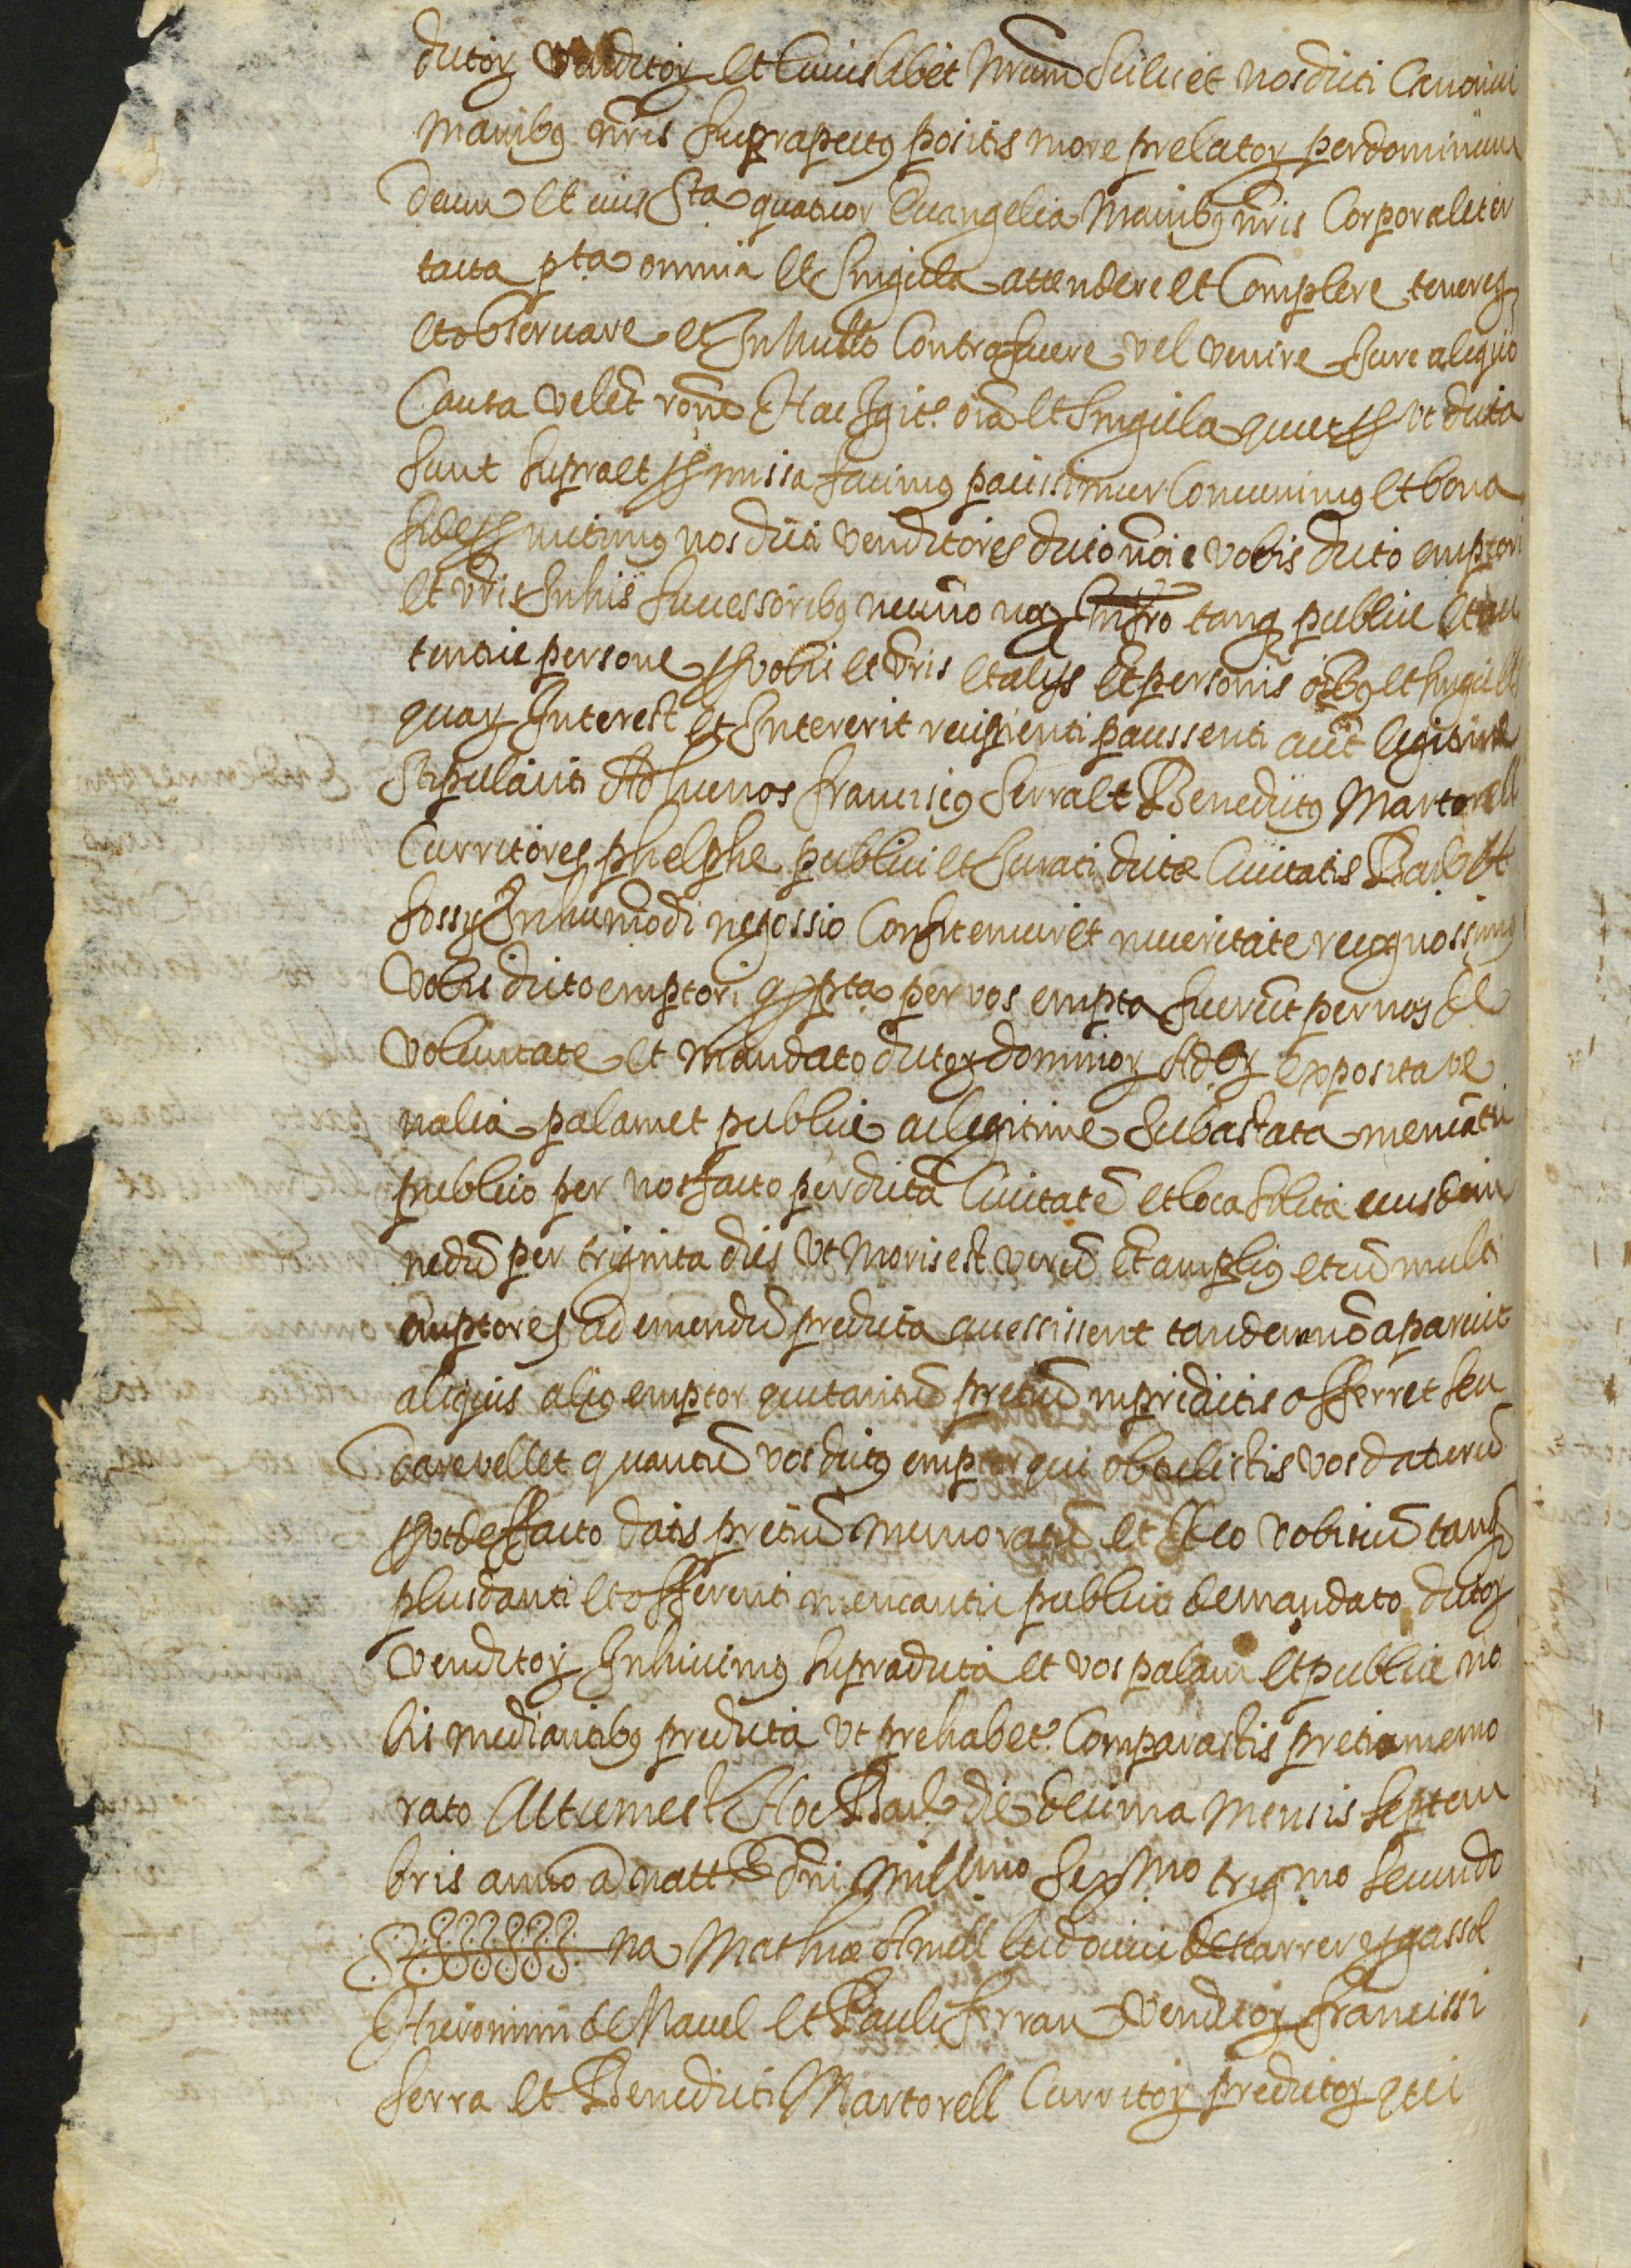 dictoꝝ venditoꝝ et cuiuslibet nr̄um scilicet nos dicti Canonici
manibꝰ nr̄is suprapectꝰ positis more prelatoꝝ per dominum
deum et eius Sta quatuor Euangelia manibꝰ nr̄is Corporaliter
tacta pta omnia et singula attendere et Complere tenereqꝫ
et obseruare et In nullo Contrafacere vel venire Jure aliquo
Causa vel et̄ rōne Hæc Igit. oīa et singula que et ꝓut dicta
sunt supra et ꝓmissa facimus pacissimur Conuenimꝰ et bona
fide ꝓmitimꝰ nos dicti venditores dicto nōie vobis dicto emptori
et vr̄is In his successoribꝰ necnon noꝝ Infro tanqꝫ publice et au
tentice persone ꝓ vobis et vr̄is et alijs et personis oībꝰ et singulis
quaꝝ Interest et Intererit recipienti paussenti ac et̄ legitime
stipulanti Ad hæc nos franciscꝰ serra et Benedictꝰ Martorell
Curritores phelphe publici et Jurati dicte Ciuitatis Barᵉ et
sossij In huiꝰmodi negossio Confitemur et in veritate recognossimꝰ
vobis dicto emptori qꝫ pta per vos empta fuerūt per nos de
voluntate et mandato dictoꝝ dominoꝝ exposita ve
nalia palam et publice ac legitime subastata mencantu
publico per nos facto per dictā Ciuitatē et loca solita eiusdem
nedū per triginta dies vt moris est verū et̄ ampliꝰ et cū multi
emptores ad emendū predicta quessissent tandem nō aparuit
aliquis aliꝰ emptor qui tantū pretiū in predictis offerret seu
dare vellet quantū vos dictꝰ emptor qui obtulistis vos daturū
ꝓut de facto datis pretiū memoratū et Ideo vobis cū tanqꝫ
plus danti et offerenti mencantu publico de mandato dictoꝝ
venditoꝝ supradicta et vos palam et publice no
bis mediantibꝰ predicta vt prehabet. Comparastis pretio memo
rato Actum est Hoc Barᵉ die decima mensis septem
bris anno a natt e dn̄i millmo sexmo trigmo secundo
na Mathiæ Amell ludouici descarrer y gassol
Hieronimi de Nauel et Pauli ferran venditoꝝ francissi
serra et Benedicti Martorell Curritoꝝ predictoꝝ qui